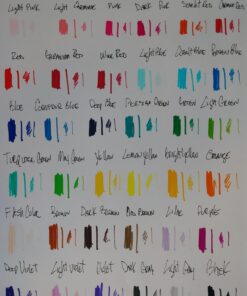 Light Pink Light Carmine Pink Dark Pink Scarlet Red Carmine Red
Red Geranium Red Wine Red Light Blue Cobalt Blue
Blue Blue Deep Blue Green Light Green
Turquoise Green May Green Yellow Lemon Yellow Bright Yellow Orange
Flesh Color Brown Dark Brown Brown Lilac Purple
Deep Violet Light Violet Violet Dark Gray Light Gray Black